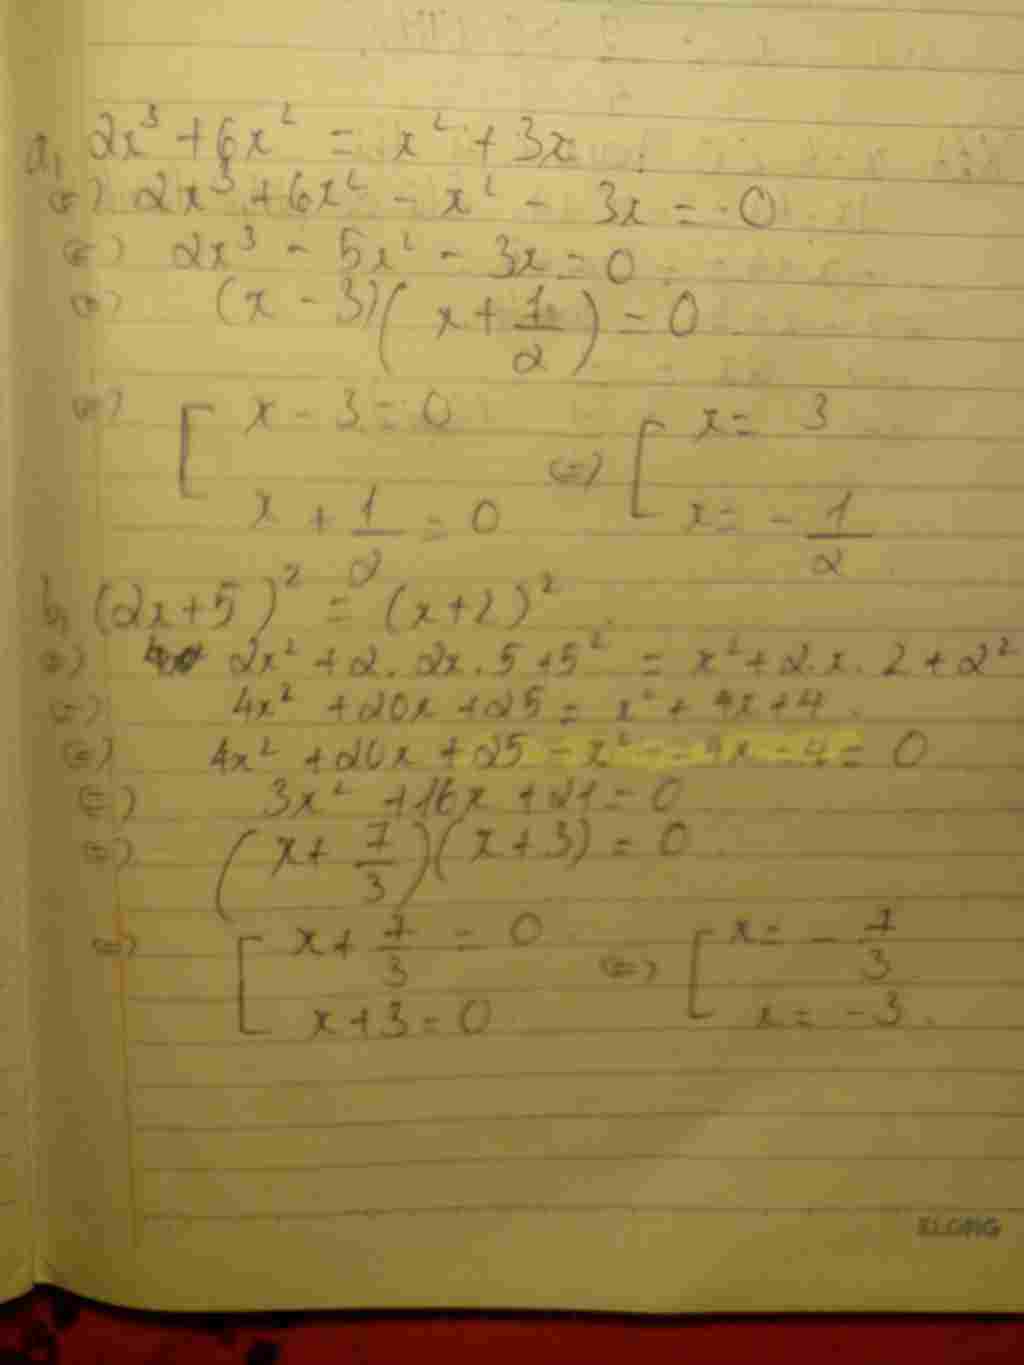 a, 2x³ + 6x² = x² + 3x
(=) 2x³ + 6x² - x² - 3x = 0
(=) 2x³ - 5x² - 3x = 0
(=) (x - 3)(x + 1/2) = 0
(=) [ x - 3 = 0 (=) [ x = 3
x + 1/2 = 0 x = - 1/2
b, (2x+5)² = (x+2)²
(=) 2x² + 2. 2x . 5 + 5² = x² + 2. x . 2 + 2²
(=) 4x² + 20x + 25 = x² + 4x + 4
(=) 4x² + 20x + 25 - x² - 4x - 4 = 0
(=) 3x² + 16x + 21 = 0
(=) (x + 7/3)(x + 3) = 0
(=) [ x + 7/3 = 0 (=) [ x = - 7/3
x + 3 = 0 x = -3.
KLONG